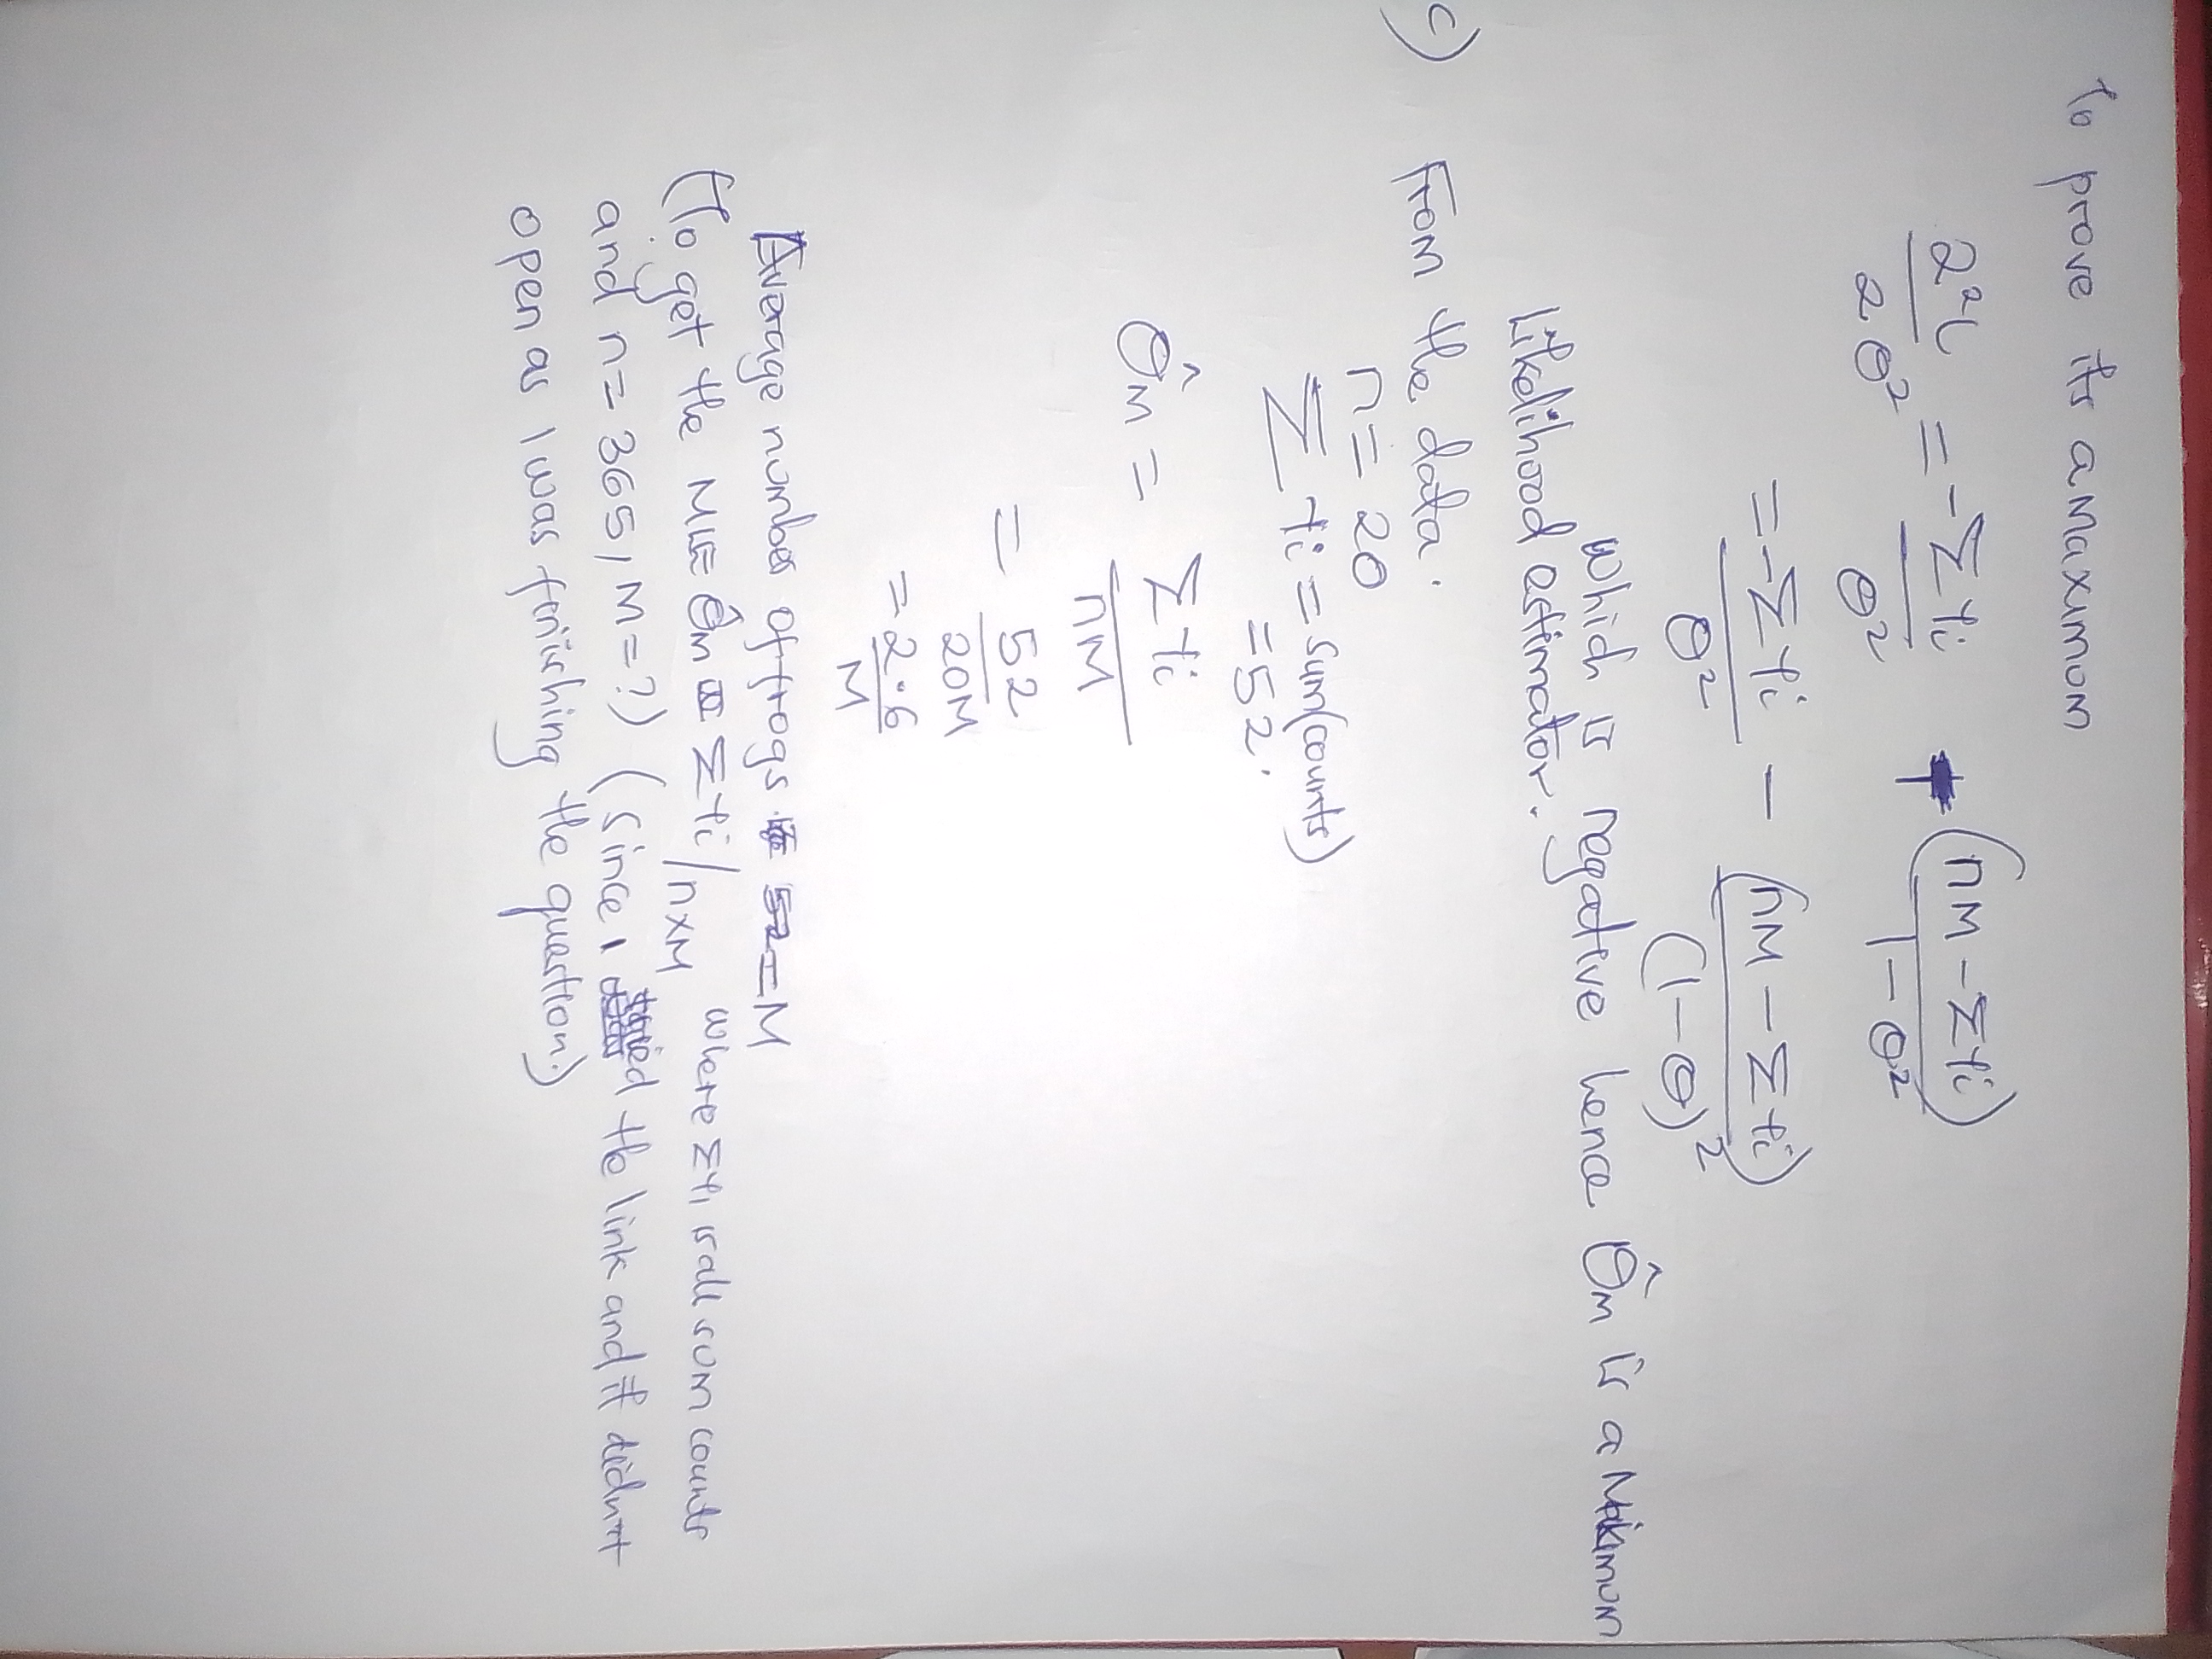 To prove its a Maximum
∂²l/∂θ² = -ΣYi/θ² + (nM - ΣYi)/1-θ²
= -ΣYi/θ² - (nM - ΣYi)/(1-θ)²
Which is negative hence θ̂m is a Maximum
Likelihood estimator.
c) From the data.
n = 20
ΣYi = Sum(counts)
= 52.
θ̂m = ΣYi/nM
= 52/20M
= 2.6/M
Average number of frogs = M
(To get the MLE θ̂m = ΣYi/n×M where ΣYi is all sum counts
and n = 365, M = ?) (Since I tried the link and it didn't
open as I was finishing the question.)